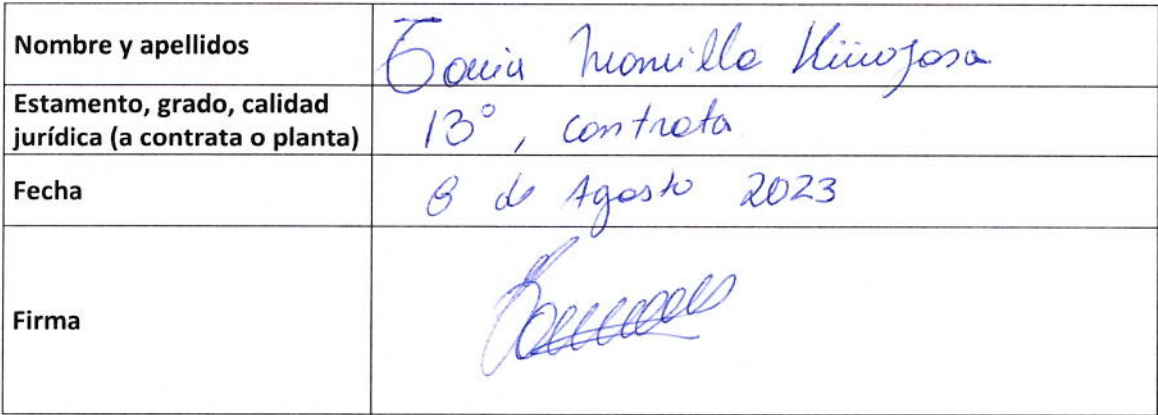 Nombre y apellidos
Tania Mancilla Hinojosa
Estamento, grado, calidad
jurídica (a contrata o planta)
13°, contrata
Fecha
8 de Agosto 2023
Firma